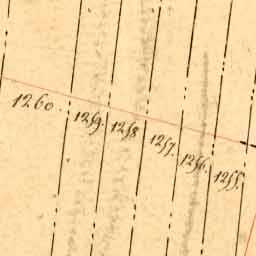 1260. 1259. 1258 1257. 1256. 1255.